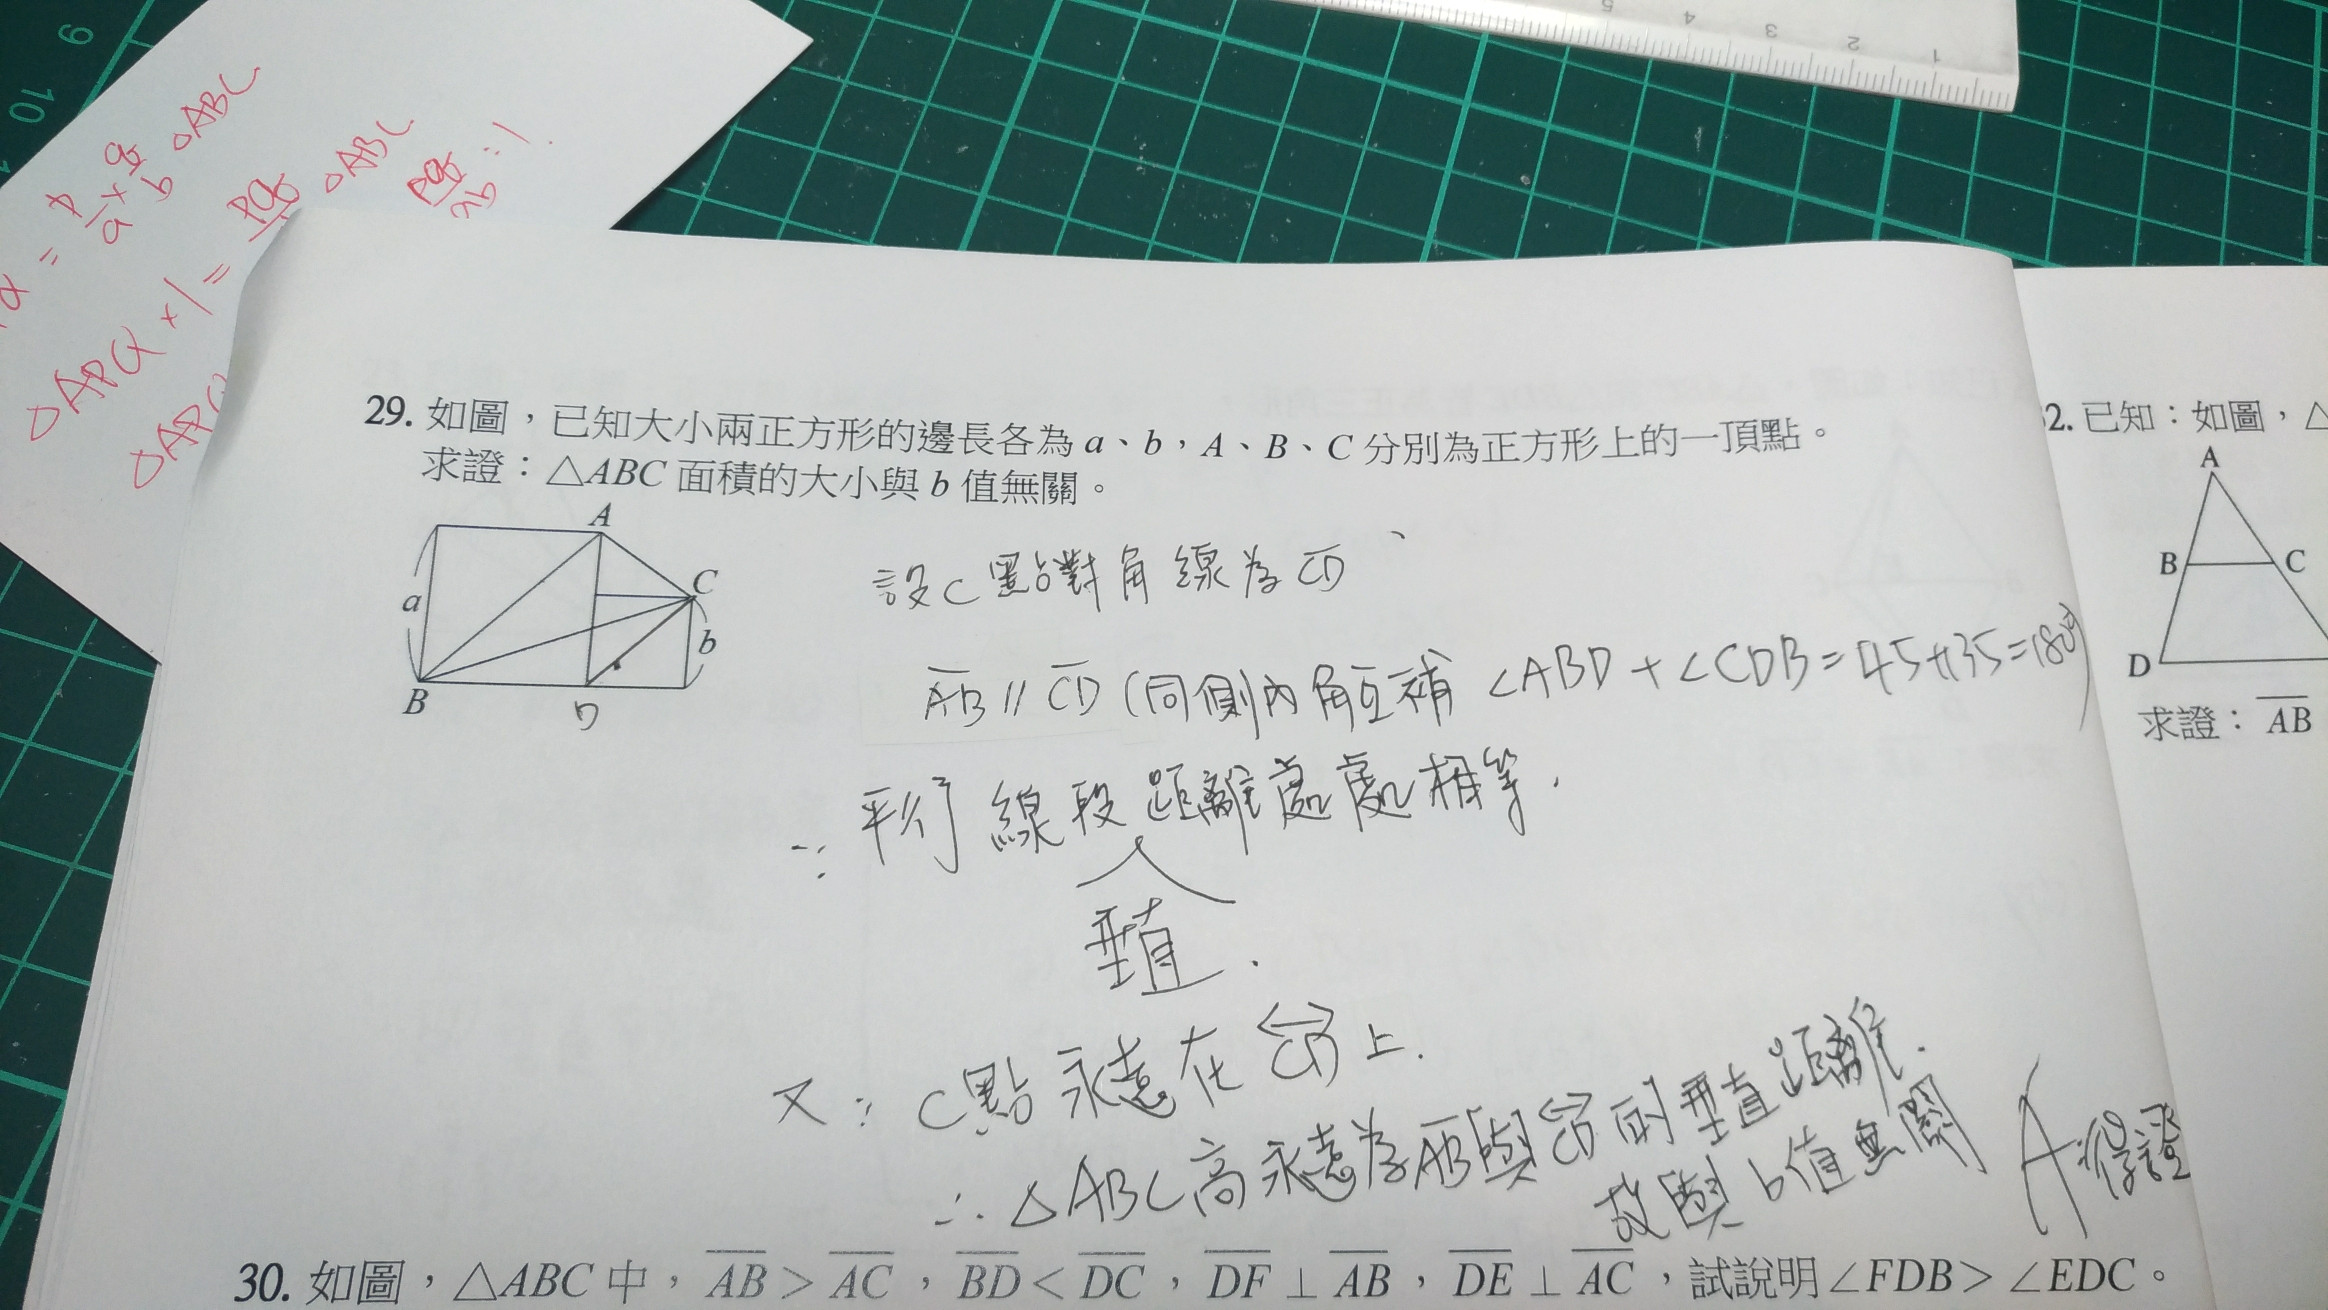 9
10
5 4 3 2 1
= p/a × q/b △ABC
△APQ × 1 = pq △ABC
pq/ab = 1
29. 如圖，已知大小兩正方形的邊長各為 a、b，A、B、C 分別為正方形上的一頂點。
求證：△ABC 面積的大小與 b 值無關。
A
C
a
b
B
D
設C點對角線為CD
AB // CD (同側內角互補 ∠ABD + ∠CDB = 45+135=180°)
∵ 平行線段距離處處相等.
垂直.
又∵ C點永遠在CD上.
∴ △ABC高永遠為AB與CD的垂直距離.
故與b值無關
A:得證
30. 如圖，△ABC 中，AB > AC，BD < DC，DF ⊥ AB，DE ⊥ AC，試說明∠FDB > ∠EDC。
32. 已知：如圖，△
A
B
C
D
求證：AB